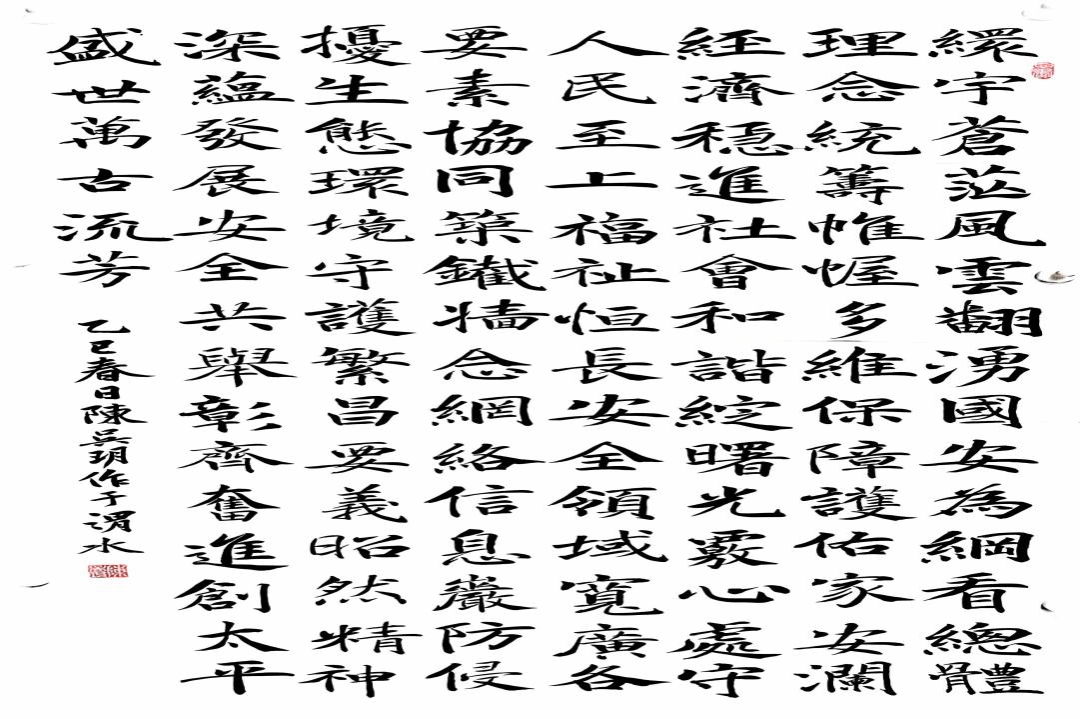 繯宇蒼茫風雲翻湧國安為綱看總體
理念統籌帷幄多維保障護佑家安瀾
經濟穩進社會和諧綻曙光覈心處守
人民至上福祉恒長安全領域寬廣各
要素協同築鐵牆念網絡信息嚴防侵
擾生態環境守護繁昌要義昭然精神
深蘊發展安全共舉彰齊奮進創太平
盛世萬古流芳
乙巳春日陳吳玥作于渭水